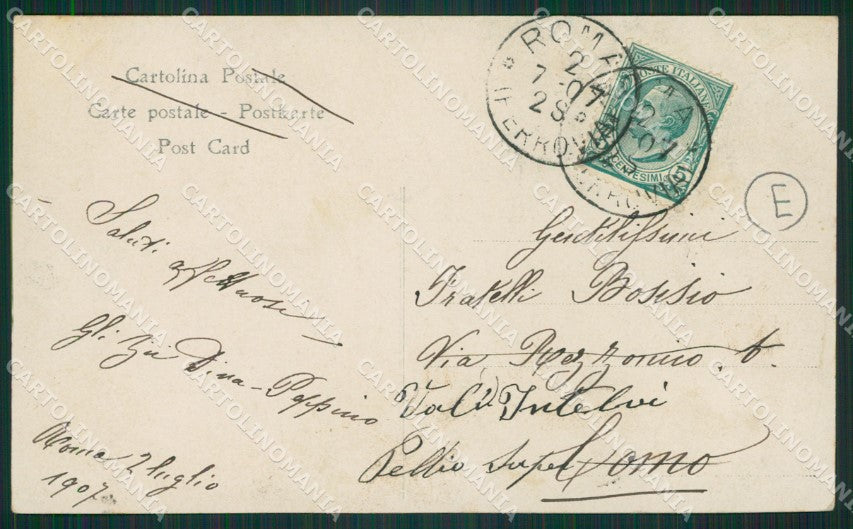 Cartolina Postale
Carte postale - Postkarte
Post Card
ROMA
2
7-07
2S
FERROVIA
POSTE ITALIANE
CENTESIMI
E
Saluti
affettuosi
Gli Zii Dina-Peppino
Roma 2 luglio
1907
Gentilissimi
Fratelli Bosisio
Via Rezzonico. 6.
Val d'Intelvi
Pellio Super Como
CARTOLINOMANIA